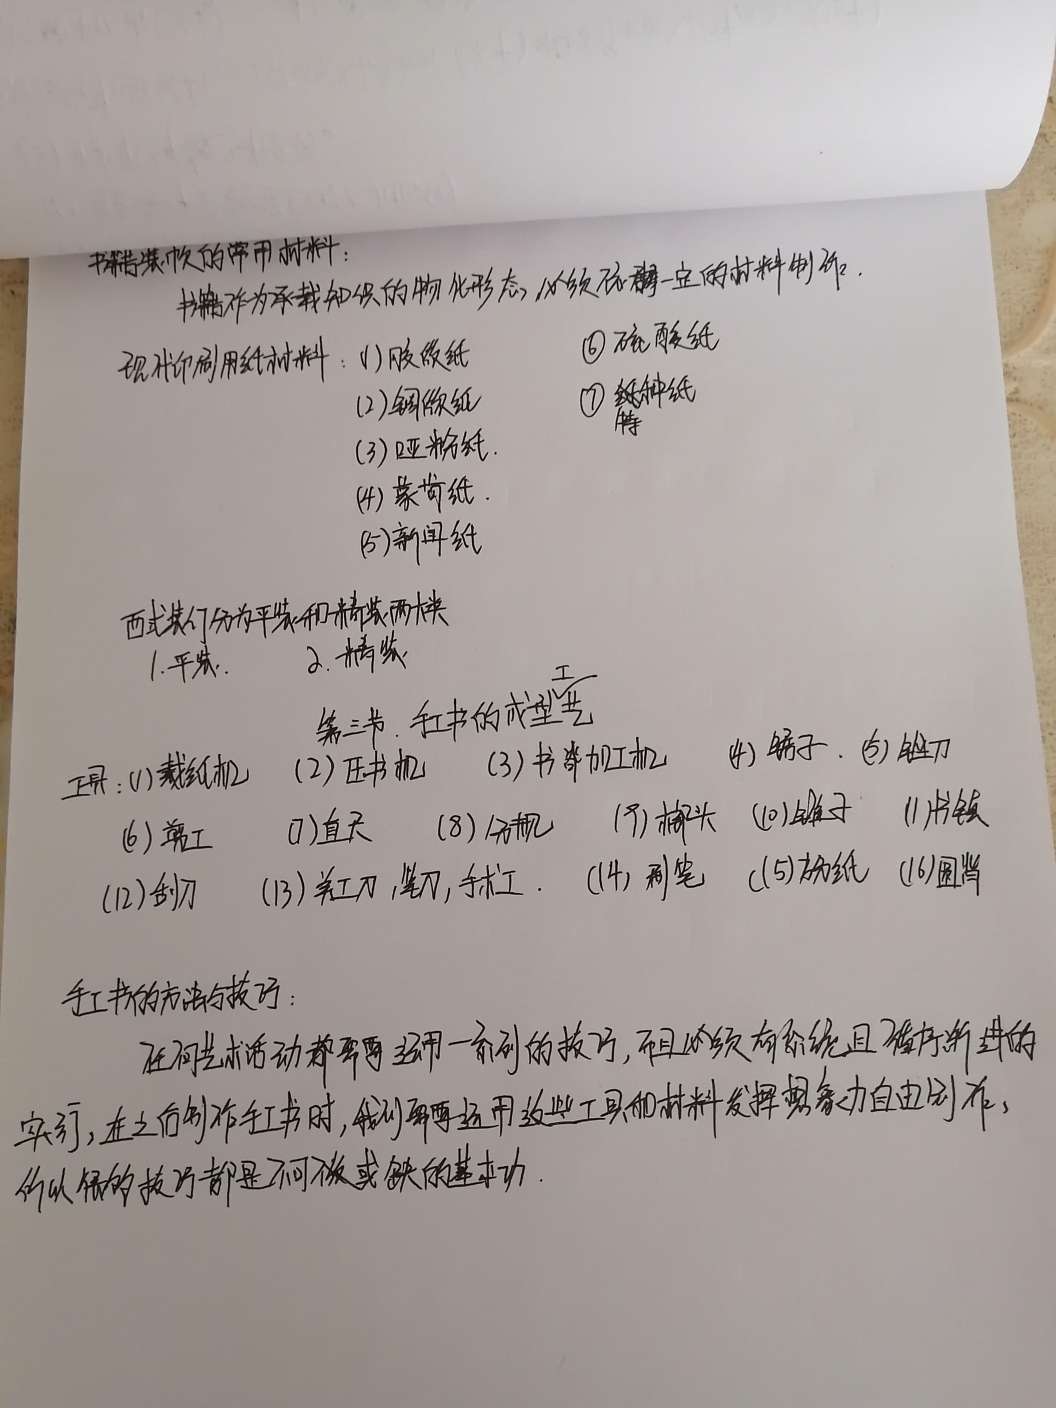 书籍装帧的常用材料:
书籍作为承载知识的物化形态,必须依靠一定的材料制作.
现代印刷用纸材料: (1)胶版纸 ⑥ 硫酸纸
(2)铜版纸 ⑦ 种纸
特
(3)哑粉纸.
(4)蒙肯纸.
(5)新闻纸
西式装订分为平装和精装两大类
1.平装. 2.精装
第三节.手工书的成型工艺
工具:(1)裁纸机 (2)压书机 (3)书脊加工机 (4)锯子. (5)锉刀
(6)剪工 (7)直尺 (8)分规 (9)榔头 (10)锥子 (11)书镇
(12)刮刀 (13)美工刀,笔刀,手术工. (14)刷笔 (15)砂纸 (16)圆脊
手工书的方法与技巧:
任何艺术活动都需要运用一系列的技巧,而且必须有系统且循序渐进的
实习,在之后制作手工书时,我们需要运用这些工具和材料发挥想象力自由创作,
所以的技巧都是不可或缺的基本功.